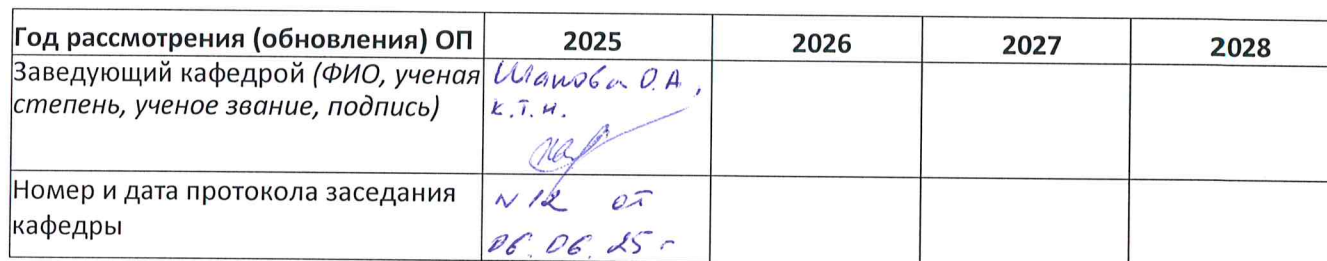 Год рассмотрения (обновления) ОП 2025 2026 2027 2028
Заведующий кафедрой (ФИО, ученая Шапова О.А,
степень, ученое звание, подпись) к.т.н.
Номер и дата протокола заседания N 12 от
кафедры 06.06.25 г